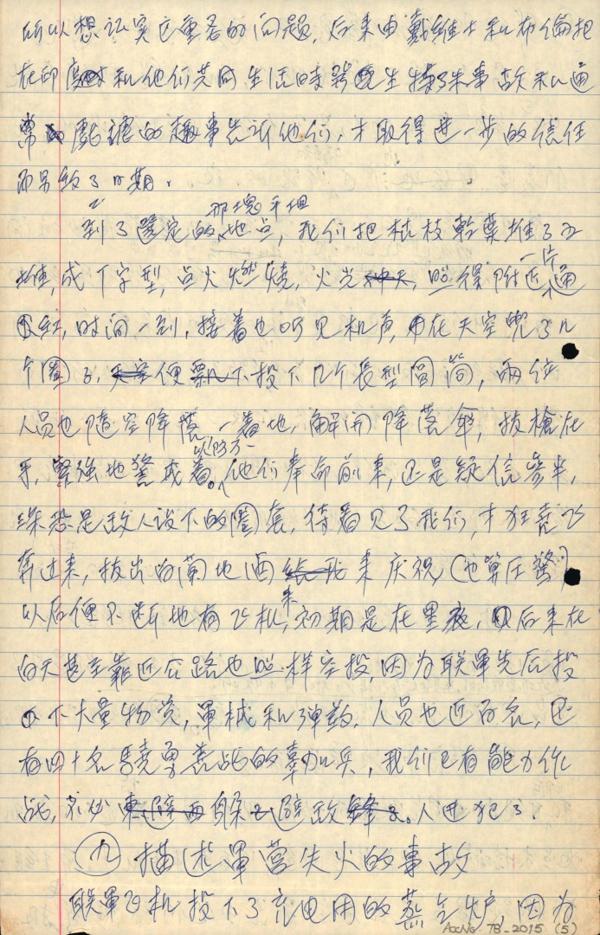 所以想证实它重要的问题，后来由戴维士和布伦把
在印度和他们共同生活时发生特殊事故和通
常戏谑的趣事告诉他们，才取得进一步的信任
而另约了日期。
那块平坦
到了选定的地点，我们把枯枝乾叶堆了三
一片
堆，成丁字型，点火燃烧，火光冲天，照得附近通
红，时间一到，接着也听见机声，在天空兜了几
个圈子，便不投下几个长型圆筒，两位
人员也随空降落，一着地，解开降落伞，拔枪在
以防万一
手，坚强地警戒着。他们奉命前来，还是疑信参半，
深恐是敌人设下的圈套，待看见了我们，才狂喜飞
奔过来，拔出白兰地酒来庆祝，（也算压惊）
来
以后便不断地有飞机，初期是在黑夜，后来在
白天甚至靠近公路也照样空投，因为联军先后投
下大量物资，军械和弹药，人员也近百名，还
有四十名骁勇善战的辜加兵，我们已有能力作
战，不必东避西躲逃避敌人进犯了。
（九）描述军营失火的事故
联军飞机投下了充电用的蒸气炉，因为
Acc No TB-2015 (5)